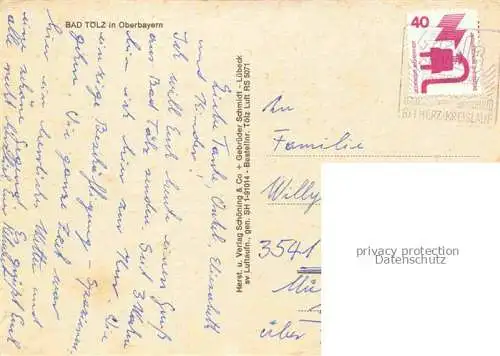 BAD TÖLZ in Oberbayern
Liebe Tante, Onkel, Elisabeth
und Kinder!
Ich will Euch heute einen Gruß
aus Bad Tölz senden. Seit 3 Wochen
bin ich hier zur Kur. Die
einzige Beschäftigung - Spazieren-
gehen. Die ganze Zeit war
hier ein herrliches Wetter und
eine schöne Gegend. Es grüßt Euch
alle recht herzlich
Herst. u. Verlag Schöning & Co + Gebrüder Schmidt - Lübeck
sv Luftaufn., gen. SH 1-91014 - Bestellnr. Tölz Luft RS 5071
40
BEI HERZ-KREISLAUF
An
Familie
Willy
3541
über
privacy protection
Datenschutz